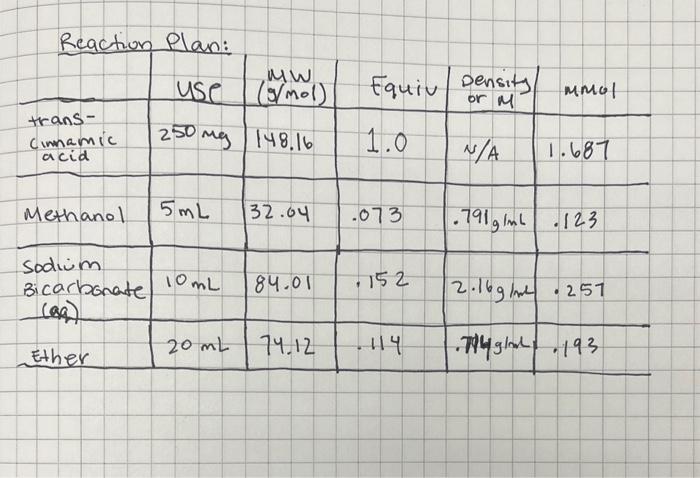 Reaction Plan:
use MW (g/mol) Equiv Density or M mmol
trans-
Cinnamic
acid 250 mg 148.16 1.0 N/A 1.687
Methanol 5mL 32.04 .073 .791g/mL .123
Sodium
Bicarbonate
(aq) 10mL 84.01 .152 2.16g/mL .257
Ether 20 mL 74.12 .114 .714g/mL .193